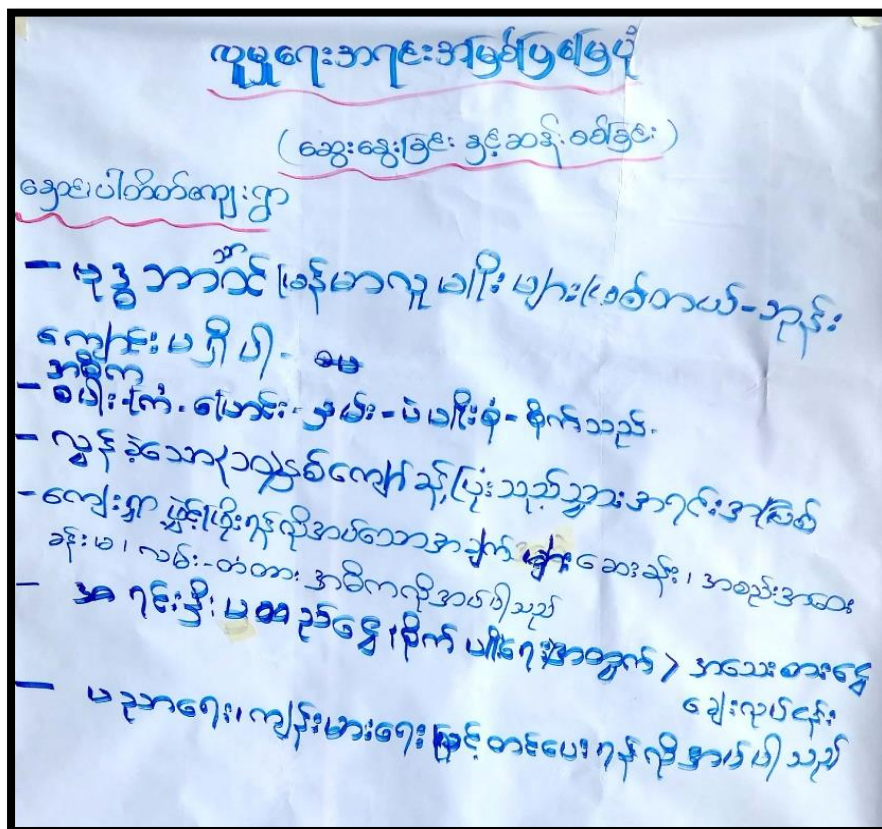 လူမှုရေးအရင်းအမြစ်ပြမြေပုံ
(ဆွေးနွေးခြင်း နှင့်ဆန်းစစ်ခြင်း)
နှောပါတိတ်ကျေးရွာ
- ဗုဒ္ဓဘာသာဝင် မြန်မာလူမျိုးများဖြစ်တယ်-ဘုန်း
ကျောင်းမရှိပါ-
အဓိက
- စပါး-ကြံ-ပြောင်း-နှမ်း-ပဲမျိုးစုံ-စိုက်သည်-
- လွန်ခဲ့သော(၁၀)နှစ်ကျော်ခန့်ပြုံးသည့်သွားအရင်းအမြစ်
- ကျေးရွာ ဖွံ့ဖြိုးရန်လိုအပ်သောအချက် များ ဆေးခန်း၊ အစည်းအဝေး
ခန်းမ၊ လမ်း-တံတား အဓိကလိုအပ်ပါသည်
- အရင်းနှီး မတည်ငွေ (စိုက်ပျိုးရေးအတွက်) အသေးစားငွေ
ချေးလုပ်ငန်း
- ပညာရေး၊ ကျန်းမာရေးမြှင့်တင်ပေးရန်လိုအပ်ပါသည်